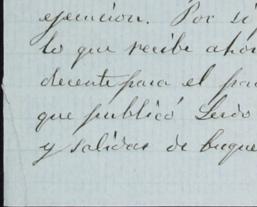 ejecucion. Por si
lo que recibe ahor
decente para el pa
que publicó Lerdo
y salidas de buque